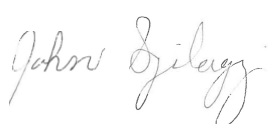 John Szilagyi